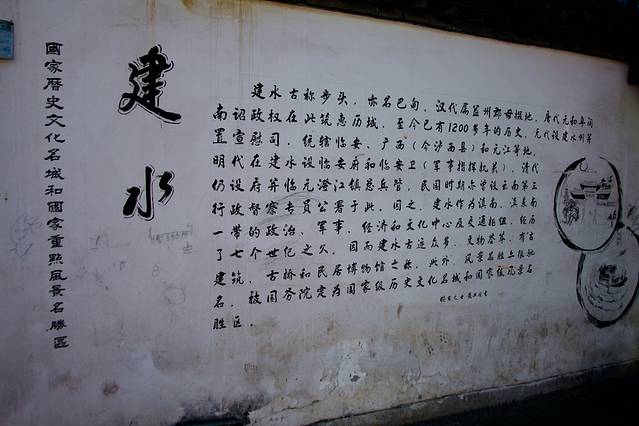 國家歷史文化名城和國家重點風景名勝區
建水
建水古称步头，亦名巴甸。汉代属益州郡毋掇地。唐代元和年间
南诏政权在此筑惠历城，至今已有1200多年的历史。元代设建水州等
置宣慰司，统辖临安、广西（今泸西县）和元江等地。
明代在建水设临安府和临安卫（军事指挥机关），清代
仍设府并临元澄江镇总兵管，民国时期亦曾设立南第三
行政督察专员公署于此，因之，建水作为滇南、滇东南
一带的政治、军事、经济和文化中心及交通枢纽，经历
了七个世纪之久，因而建水古迹众多，文物荟萃，有古
建筑、古桥和民居博物馆之称，此外，风景名胜土很驰
名，被国务院定为国家级历史文化名城和国家级风景名
胜区。